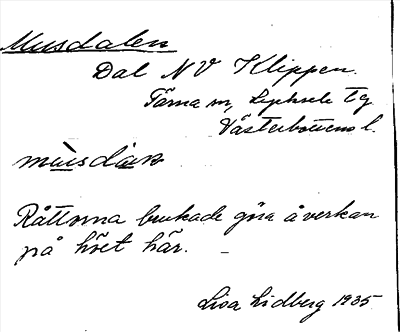 Musdalen
Dal NV Klippen.
Tärna sn, Lycksele tg
Västerbottens l.
Råttorna brukade göra åverkan
på höet här. _
Lisa Lidberg 1935